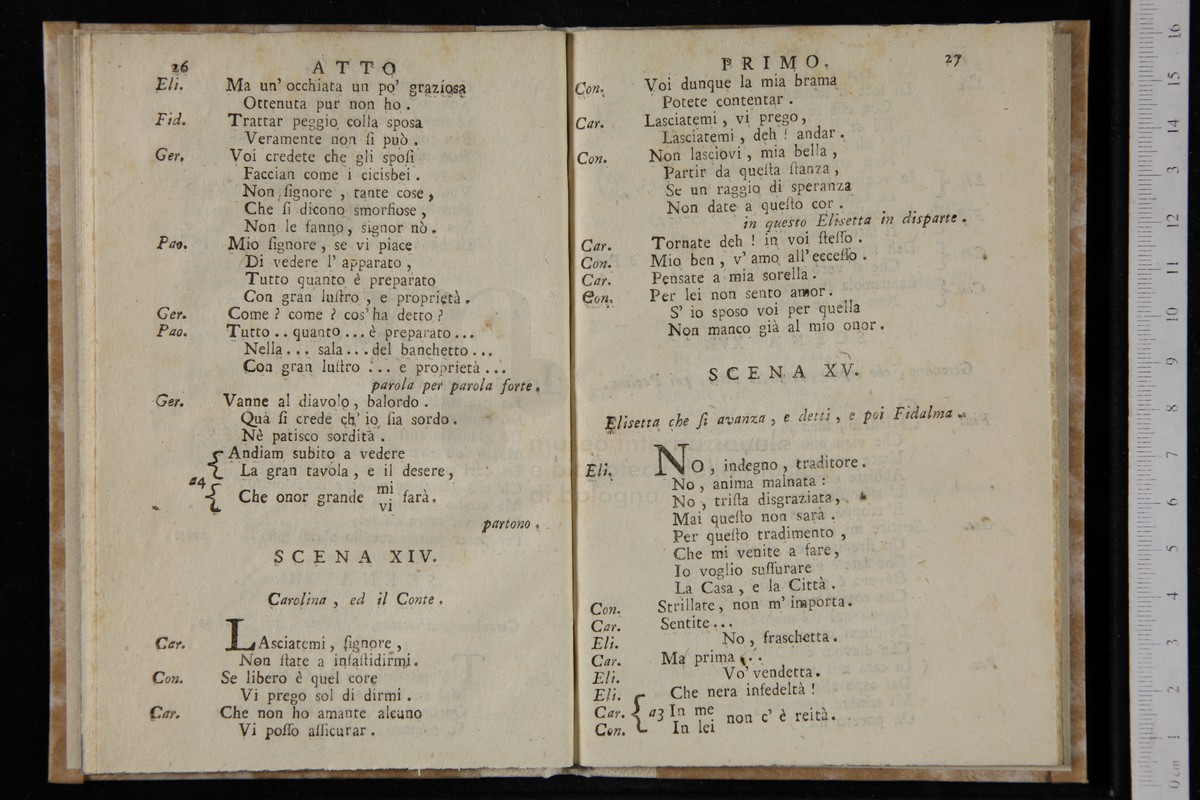 26 ATTO
Eli. Ma un' occhiata un po' graziosa
Ottenuta pur non ho .
Fid. Trattar peggio colla sposa
Veramente non ſi può .
Ger. Voi credete che gli spoſi
Faccian come i cicisbei .
Non ſignore , tante cose ,
Che ſi dicono smorfiose ,
Non le fanno , signor nò .
Pao. Mio ſignore , se vi piace
Di vedere l' apparato ,
Tutto quanto è preparato
Con gran luſtro , e proprietà .
Ger. Come ? come ? cos' ha detto ?
Pao. Tutto .. quanto ... è preparato ...
Nella ... sala ... del banchetto ...
Con gran luſtro ... e proprietà ...
parola per parola forte .
Ger. Vanne al diavolo , balordo .
Quà ſi crede ch' io ſia sordo .
Nè patisco sordità .
Andiam subito a vedere
La gran tavola , e il desere ,
a4
Che onor grande mi farà .
vi
partono .
SCENA XIV.
Carolina , ed il Conte .
Car. LAsciatemi , ſignore ,
Non ſtate a infaſtidirmi .
Con. Se libero è quel core
Vi prego sol di dirmi .
Car. Che non ho amante alcuno
Vi poſſo aſſicurar .
PRIMO. 27
Con. Voi dunque la mia brama
Potete contentar .
Car. Lasciatemi , vi prego ,
Lasciatemi , deh ! andar .
Con. Non lasciovi , mia bella ,
Partir da queſta ſtanza ,
Se un raggio di speranza
Non date a queſto cor .
in questo Elisetta in disparte .
Car. Tornate deh ! in voi ſteſſo .
Con. Mio ben , v' amo all' ecceſſo .
Car. Pensate a mia sorella .
Con. Per lei non sento amor .
S' io sposo voi per quella
Non manco già al mio onor .
SCENA XV.
Elisetta che ſi avanza , e detti , e poi Fidalma .
Eli. NO , indegno , traditore .
No , anima malnata :
No , triſta disgraziata ,
Mai queſto non sarà .
Per queſto tradimento ,
Che mi venite a fare ,
Io voglio suſſurare
La Casa , e la Città .
Con. Strillate , non m' importa .
Car. Sentite ...
Eli. No , fraschetta .
Car. Ma prima ...
Eli. Vo' vendetta .
Eli. Che nera infedeltà !
Car. a3 In me non c' è reità .
Con. In lei
museo internazionale
e biblioteca
di bologna
0 cm 1 2 3 4 5 6 7 8 9 10 11 12 13 14 15 16